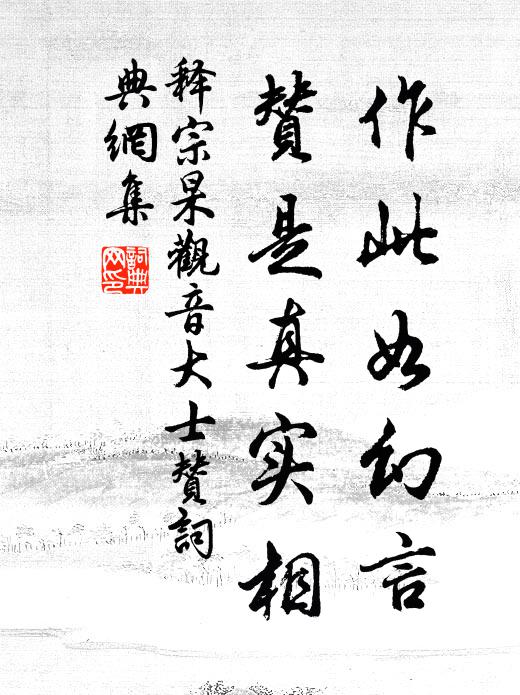 作此如幻言
赞是真实相
释宗杲觀音大士赞詞
典網集
詞典
网印